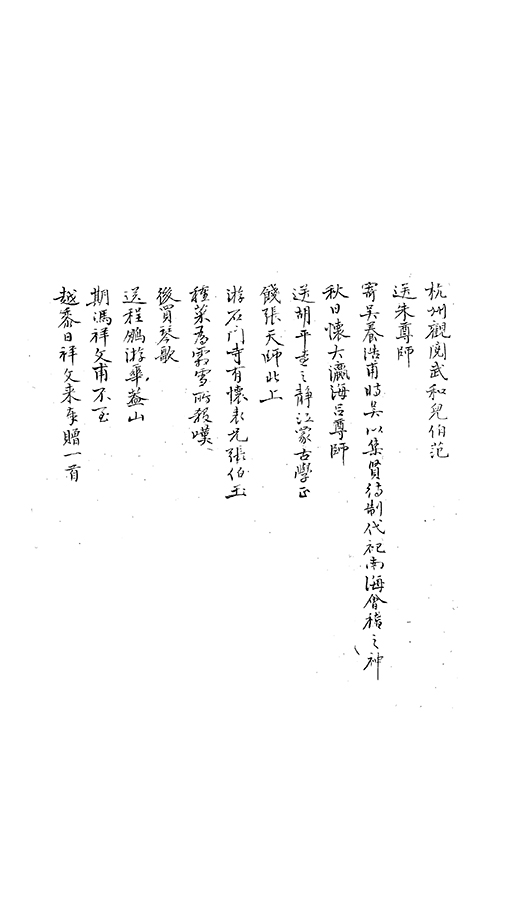 杭州觀閱武和兒伯范
送朱尊師
寄吳養浩甫時吳以集賢待制代祀南海會稽之神
秋日懷大瀛海呂尊師
送胡平遠之靜江蒙古學正
餞張天師北上
游石門寺有懷表兄張伯玉
種菜為霜雪所殺嘆
後買琴歌
送程鵬游華蓋山
期馮祥文甫不至
越數日祥文來奉贈一首